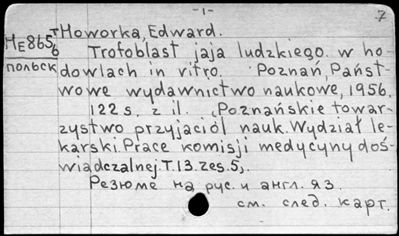 -1-
7
НЕ865 THoworka, Edward.
6 Trofoblast jaja ludzkiego w ho-
польск dowlach in vitro. Poznań, Państ-
wowe wydawnictwo naukowe, 1956.
122 s. z il. (Poznańskie towar-
zystwo przyjaciół nauk. Wydział le-
karski. Prace komisji medycyny doś-
wiadczalnej. T.13. zes.5).
Резюме на рус. и англ. яз.
см. след. карт.